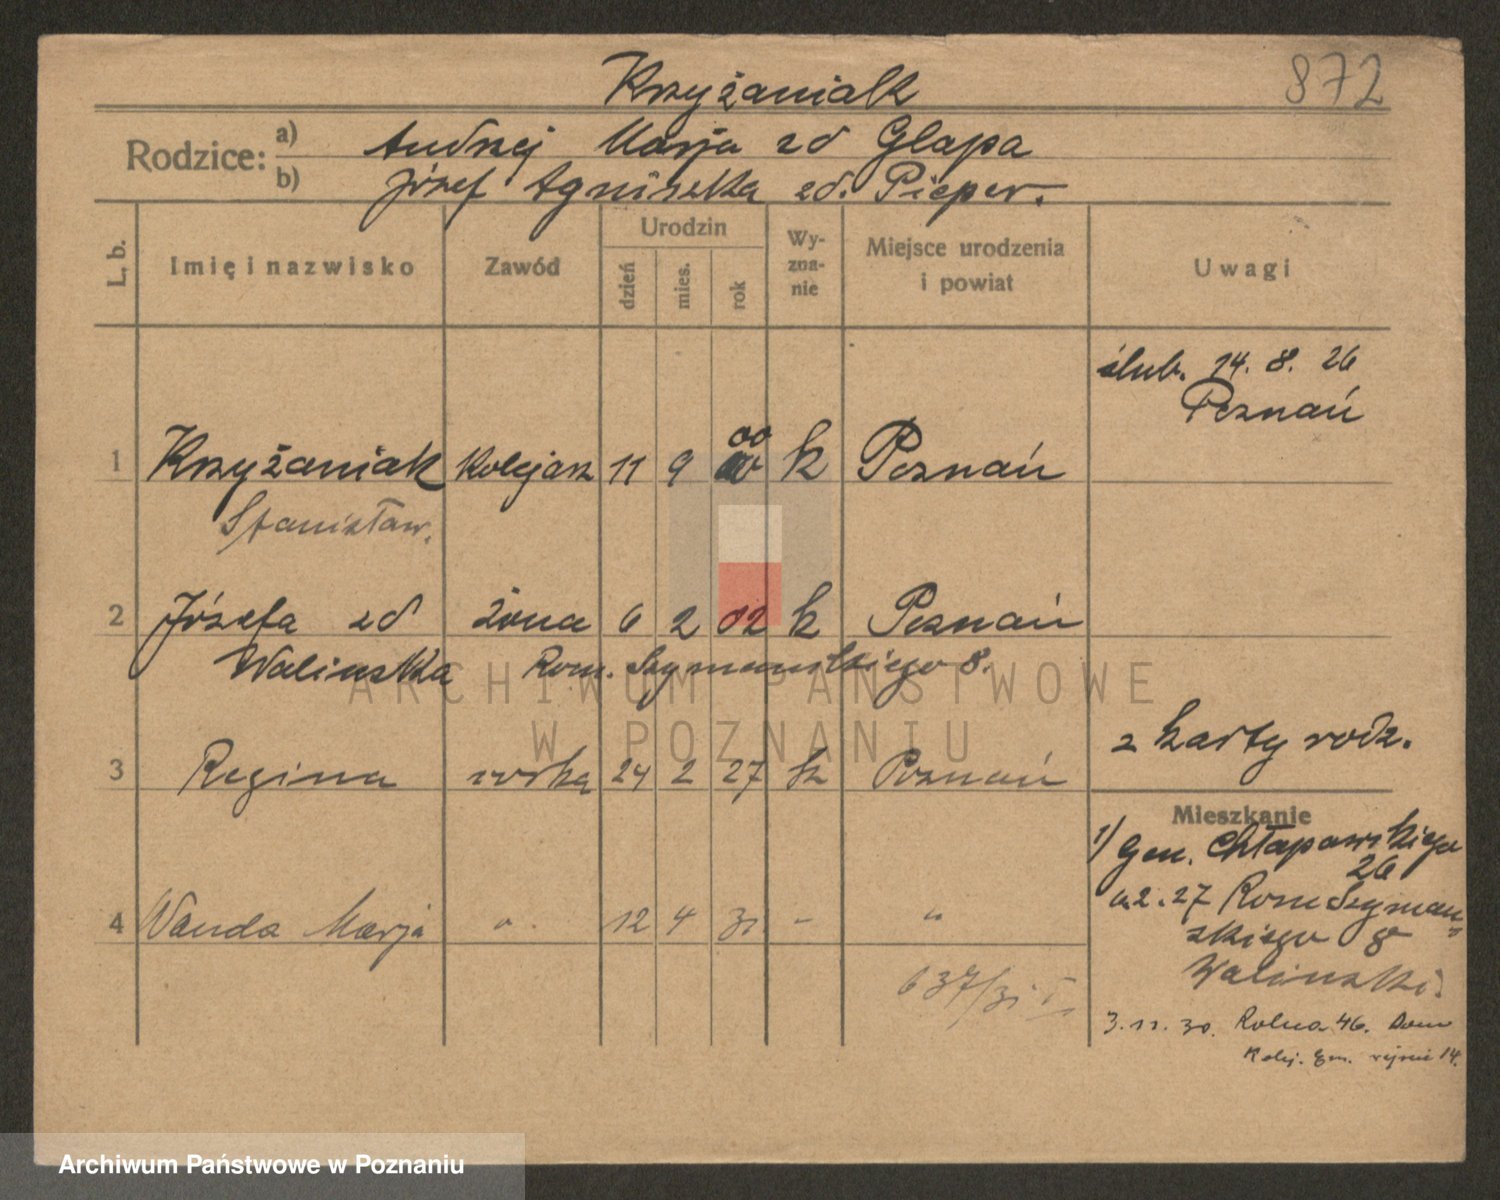 872
Krzyżaniak
Rodzice:
a) Andrzej Marja zd Glapa
b) Józef Agniszka zd. Pieper.
L. b. Imię i nazwisko Zawód Urodzin dzień mies. rok Wy-zna-nie Miejsce urodzenia i powiat Uwagi
ślub. 14. 8. 26
Poznań
00
1 Krzyżaniak Kolejarz 11 9 k Poznań
Stanisław.
2 Józefa zd żona 6 2 02 k Poznań
Walinska Rom. Szymanskiego 8.
z karty rodz.
3 Regina córka 24 2 27 k Poznań
Mieszkanie
1/ Gen. Chłapowskiego
26
2. 27 Rom Szyman-
skiego 8
4 Wanda Marja " . 12 4 31 - "
Walinski.
637/31 I
3. 11. 30. Rolna 46. Dom
Kolej.
ARCHIWUM PAŃSTWOWE
W POZNANIU
Archiwum Państwowe w Poznaniu